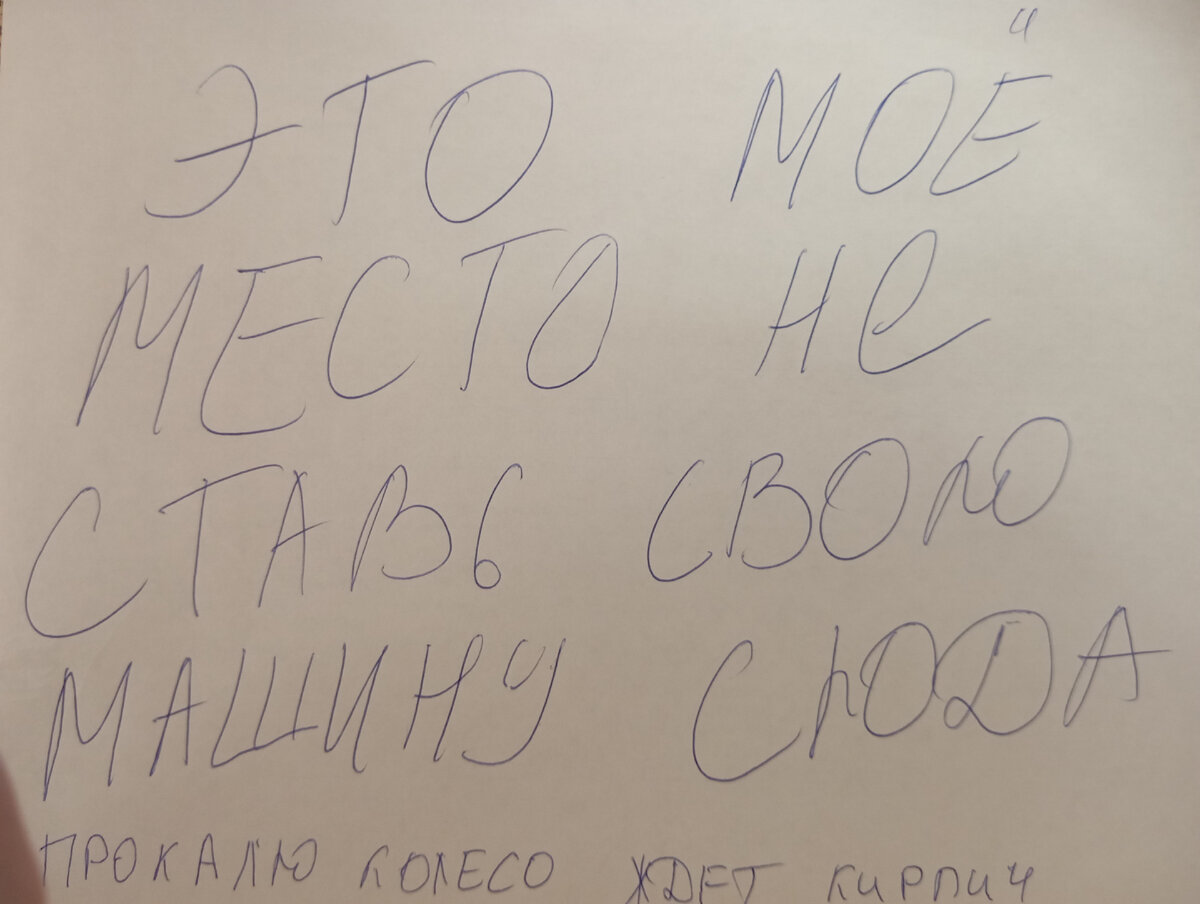 ЭТО МОЁ
МЕСТО НЕ
СТАВЬ СВОЮ
МАШИНУ СЮДА
ПРОКАЛЮ КОЛЕСО ЖДЕТ КИРПИЧ